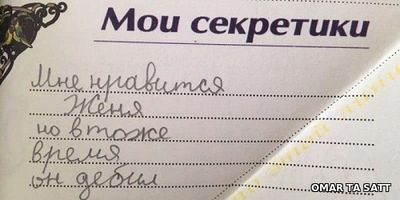 Мои секретики
Мне нравится
Женя
но в тоже
время
он дебил
OMAR TA SATT